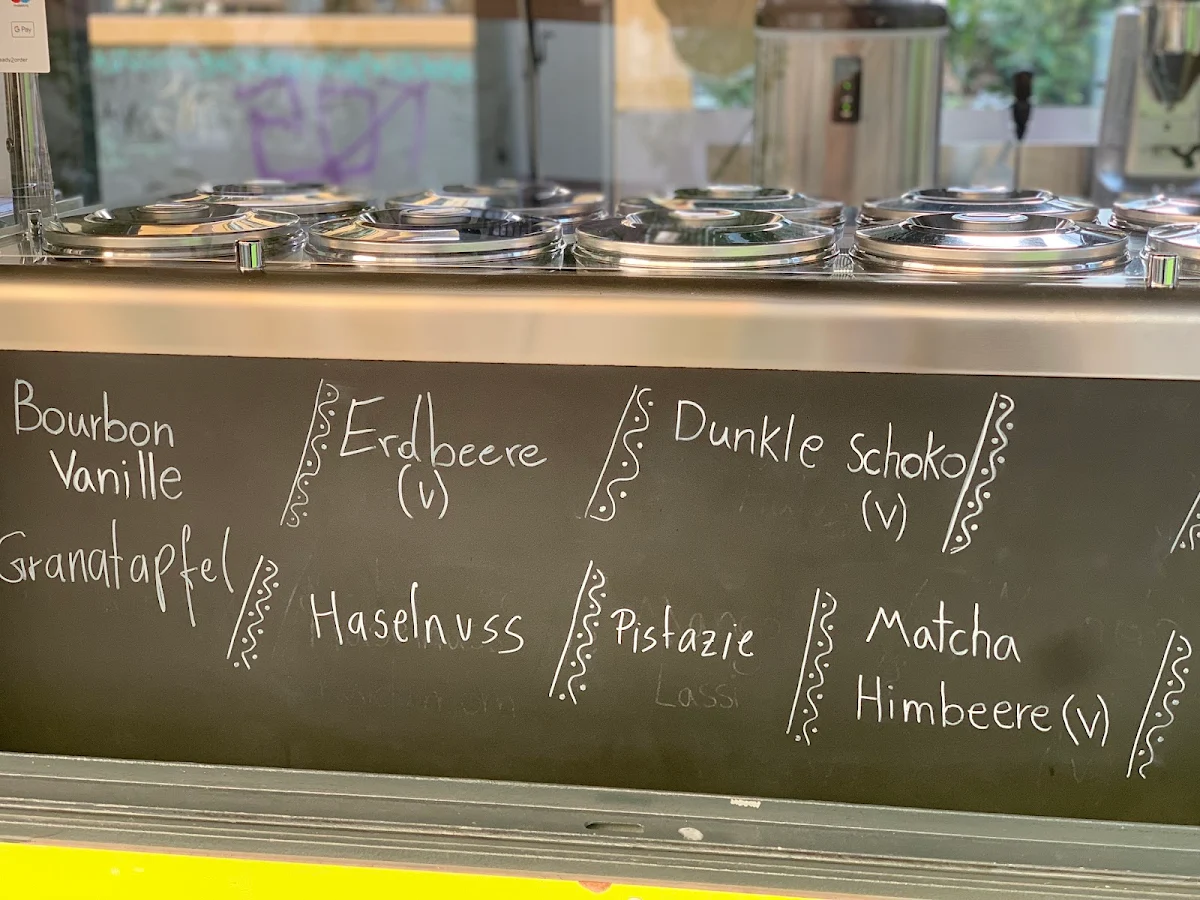 G Pay
ready2order
Bourbon
Vanille
Erdbeere
(v)
Dunkle Schoko
(v)
Granatapfel
Haselnuss
Pistazie
Lassi
Matcha
Himbeere (v)